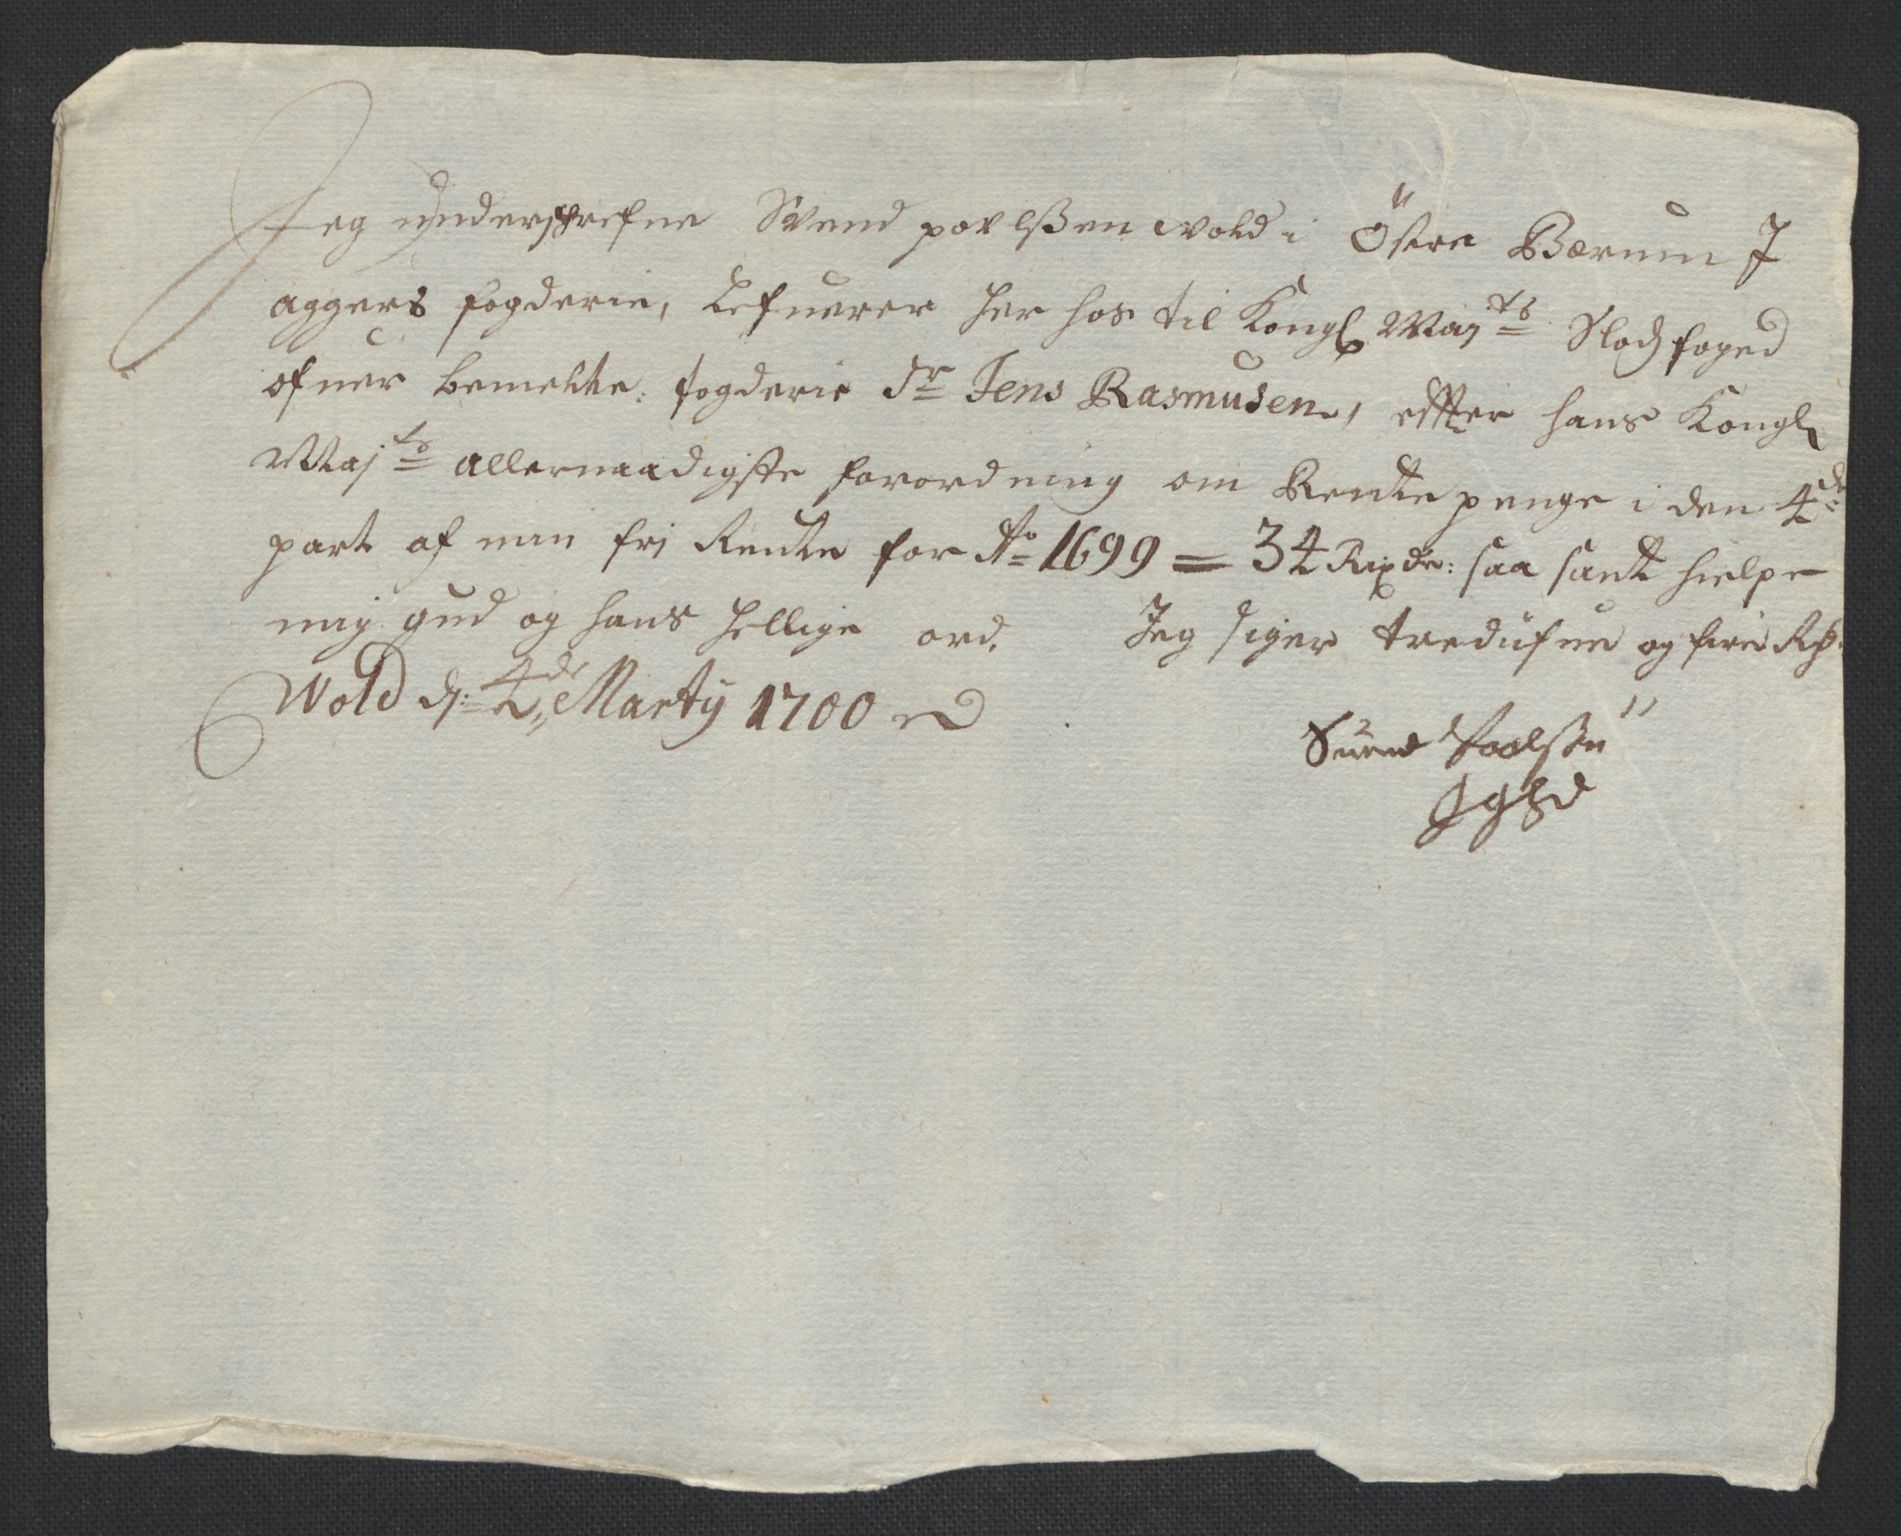 Jeg underschrefne Svend povelßen wold i Östre Bærum J
aggers fogderie, Lefuerer her hos til Kongl Maj ts Slodsfoged
ofuer bemelte: fogderie Sr Jens Rasmusen, effter hans Kongl
Maj ts allernaadigste forordning om Rentepenge i den 4de
part af min frj Rente for Ao 1699 = 34 Rixdr: saa sandt hielpe
mig gud og hans hellige ord. Jeg siger tredüfue og fire Rdr.
Wold d: 4de Marty 1700
Suend Poelßen